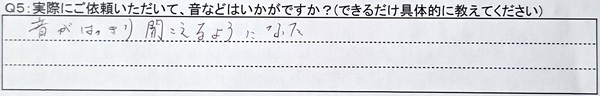 Q5:実際にご依頼いただいて、音などはいかがですか?(できるだけ具体的に教えてください)
音がはっきり聞こえるようになた